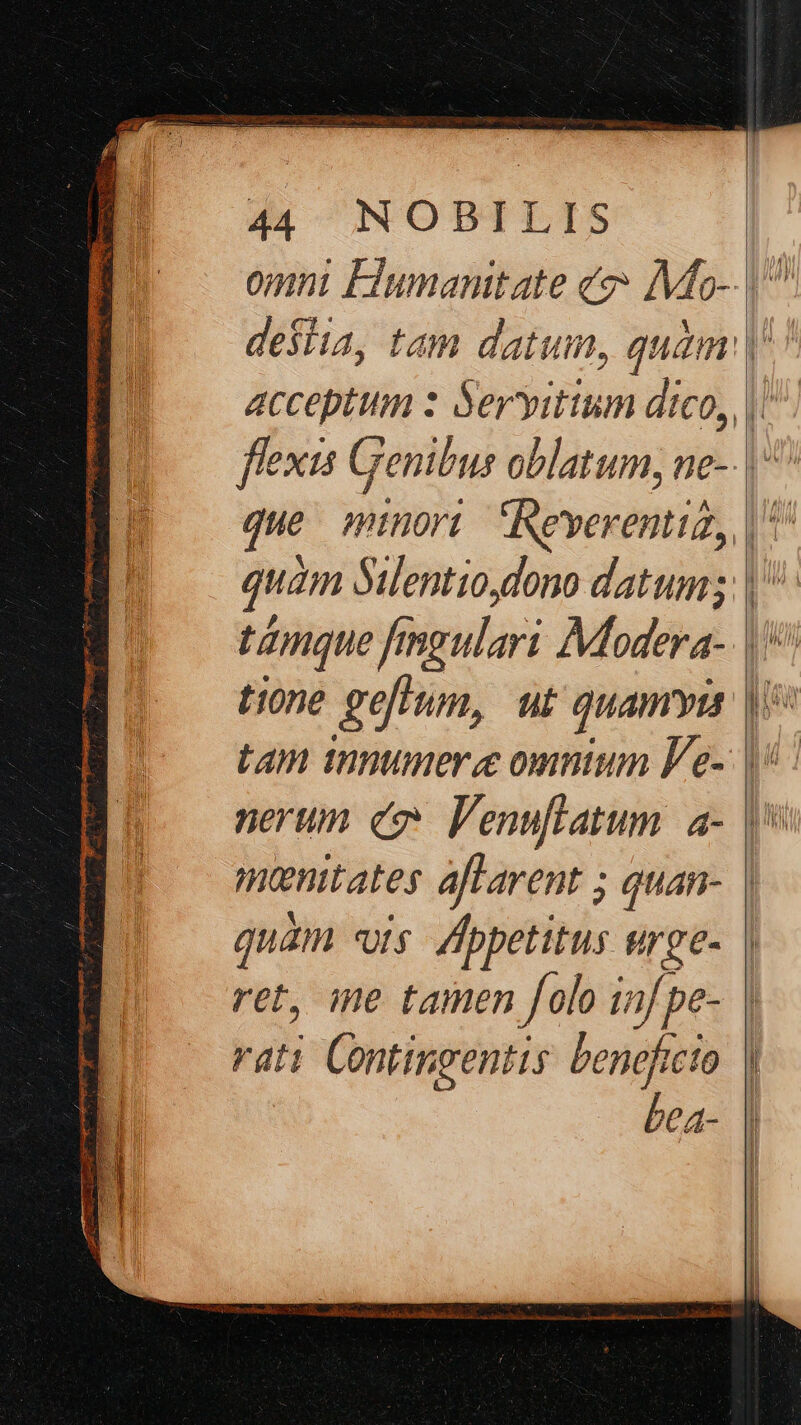 44 NOBILIS
omni Humanitate & Mo-
destia, tam datum, quàm
acceptum : Servitium dico,
flexis Genibus oblatum, ne-
que minori Reverentiâ,
quàm Silentio,dono datum;
támque ſingulari Modera-
tione geſtum, ut quamvis
tam innumeræ omnium Ve-
nerum & Venuſtatum a-
mœnitates aſtarent ; quan-
quàm vis Appetitus urge-
ret, me tamen ſolo inſpe-
rati Contingentis beneficio
bea-